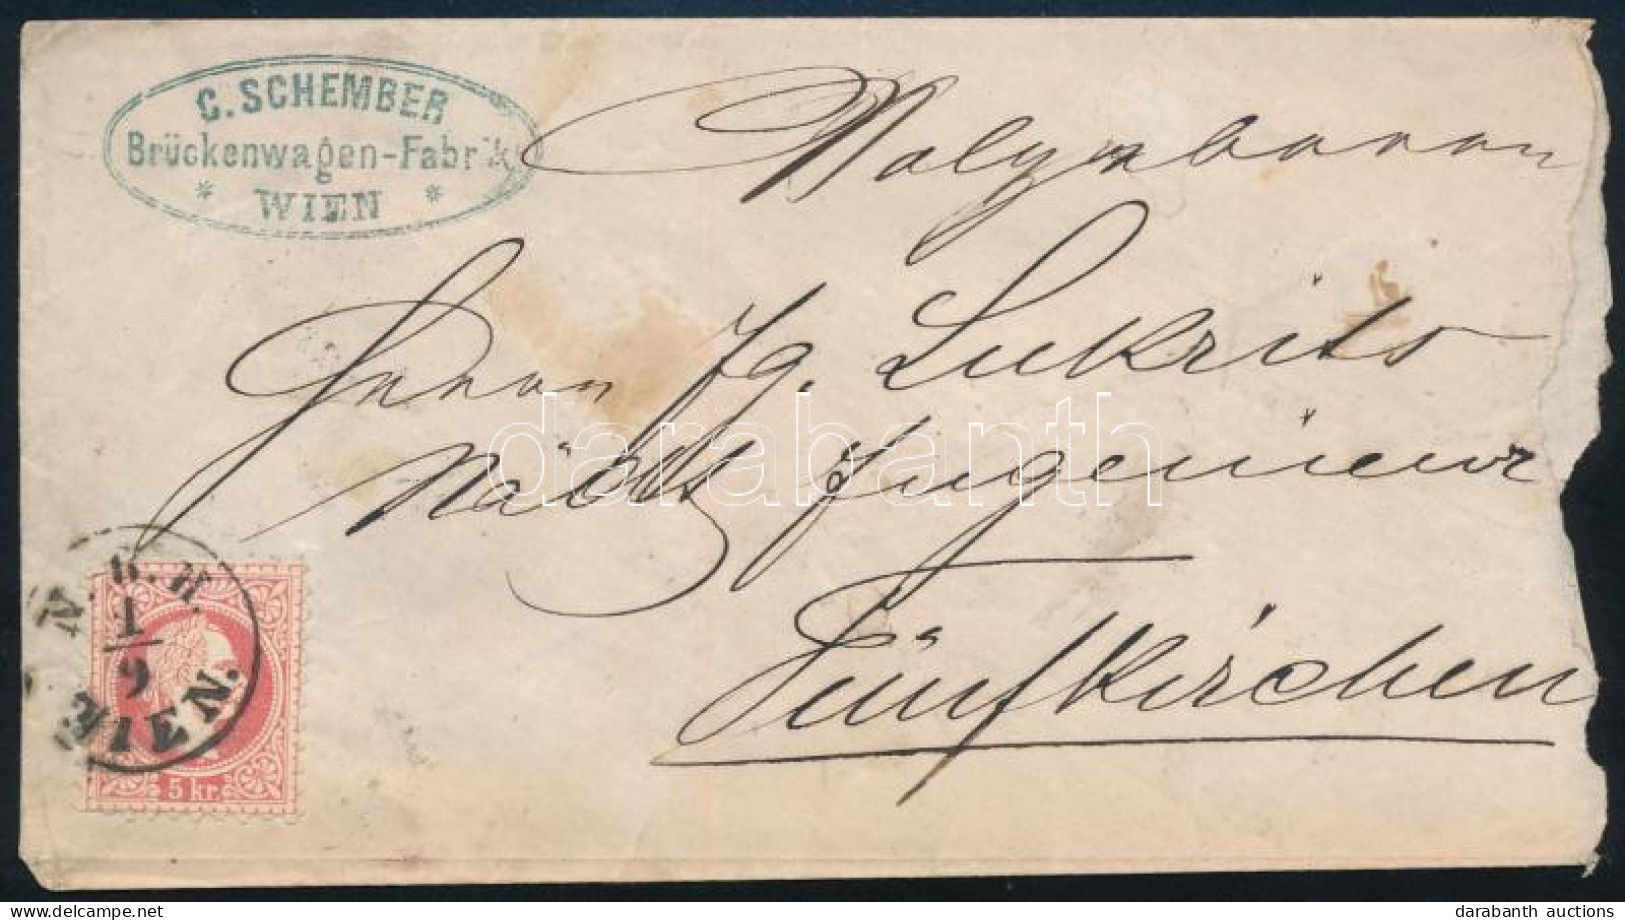 C. SCHEMBER
Brückenwagen-Fabrik
* WIEN *
Wolgeboren
Herrn Jg. Lukrits
Ingenieur
Fünfkirchen
1
9
WIEN.
5 kr.
darabanth
darabanth auctions